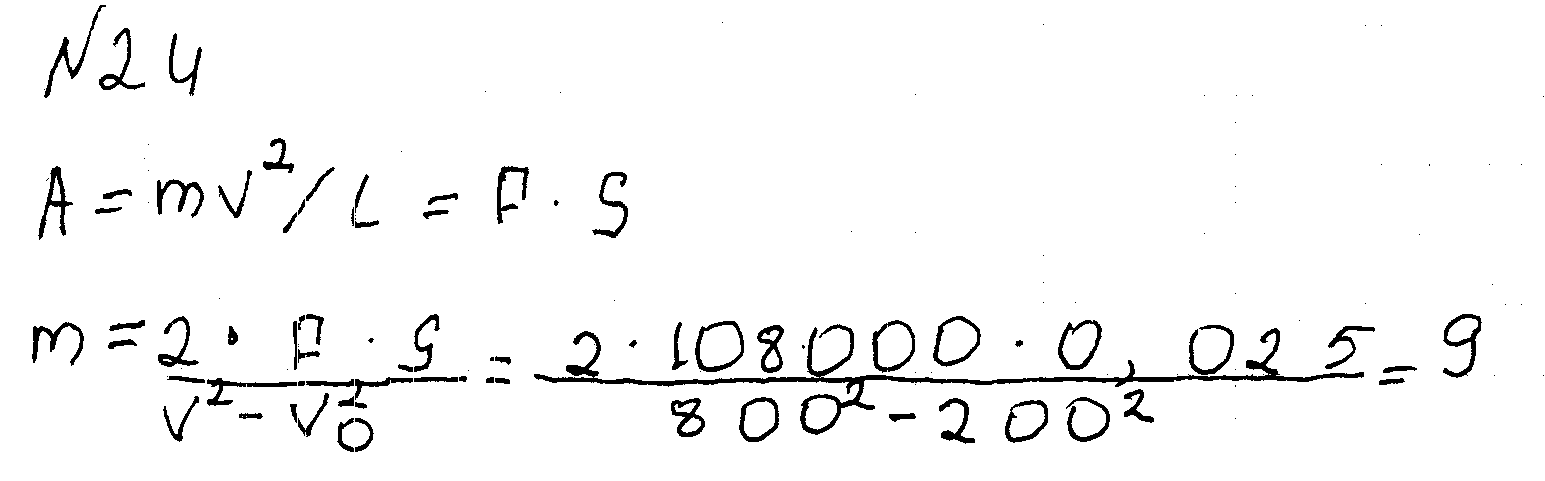 N24
A = mv²/L = F · S
m = 2 · F · S / v² - v₀² = 2 · 108000 · 0,025 / 800² - 200² = 9